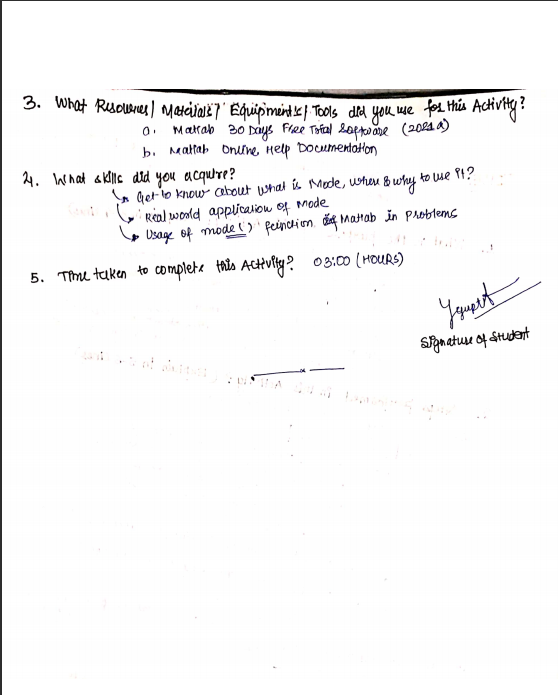 3. What Resources/ Materials/ Equipments/ Tools did you use for this Activity?
a. Matlab 30 Days Free Trial Software (2021a)
b. Matlab Online Help Documentation
4. What skills did you acquire?
↳ Get to know about what is Mode, when & why to use it?
↳ Real world application of Mode
↳ Usage of mode() function Matlab in Problems
5. Time taken to complete this Activity? 03:00 (HOURS)
Signature of Student